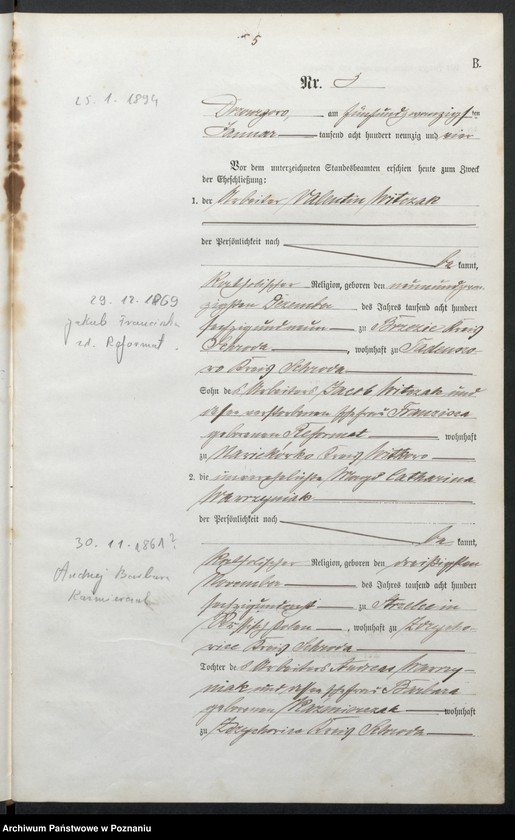 5
B.
Nr. 3
25. 1. 1894
am fünfundzwanzigsten
Januar tausend acht hundert neunzig und vier
Vor dem unterzeichneten Standesbeamten erschien heute zum Zweck
der Eheschließung:
1. der Arbeiter Valentin Witczak
der Persönlichkeit nach
be kannt,
29. 12. 1869
Jakub Franciszka
zd. Reformat.
Katholischer Religion, geboren den neunundzwan-
zigsten Dezember des Jahres tausend acht hundert
sechzig und neun zu Brzezie Kreis
Schroda, wohnhaft zu
Kreis Schroda
Sohn des Arbeiters Jacob Witczak und
dessen verstorbenen Ehefrau Franzisca
geborenen Reformat wohnhaft
zu Kreis Witkowo
2. die unverehelichte Magd Catharina
Wawrzyniak
der Persönlichkeit nach
be kannt,
30. 11. 1861?
Andrzej Barbara
Kaźmierczak
Katholischer Religion, geboren den dreißigsten
November des Jahres tausend acht hundert
sechzig und zu Strzelce in
Russisch Polen, wohnhaft zu Zdzycho-
wice Kreis Schroda
Tochter des Arbeiters Andreas Wawrzy-
niak und dessen Ehefrau Barbara
geborenen Kazmierczak wohnhaft
zu Zdzychowice Kreis Schroda
Archiwum Państwowe w Poznaniu